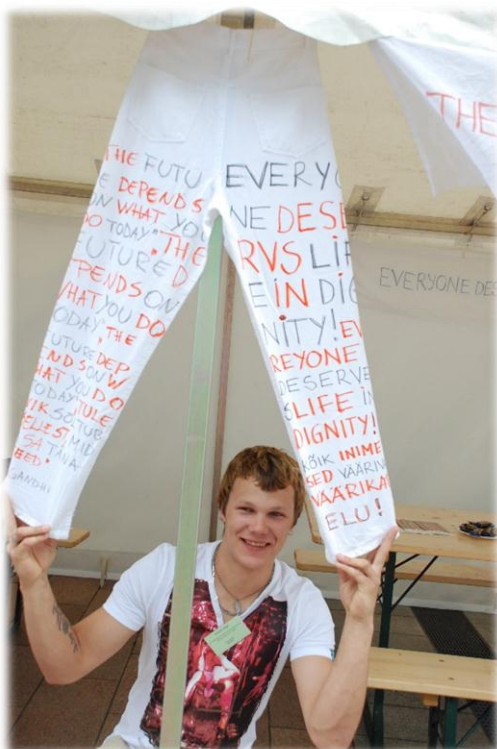 THE FUTU
E DEPENDS
ON WHAT YOU
DO TODAY". THE
FUTURE D
EPENDS ON
WHAT YOU DO
TODAY". THE
FUTURE DEP
ENDS ON W
HAT YOU DO
TODAY" TULE
VIK SÕLTUB
SELLEST MIDA
SA TÄNA
TEED.
GANDHI
EVERYO
NE DESE
RVS LIF
E IN DIG
NITY! EV
REYONE
DESERVE
S LIFE IN
DIGNITY!
KÕIK INIME
SED VÄÄRIV
VÄÄRIKAT
ELU!
THE
EVERYONE DES